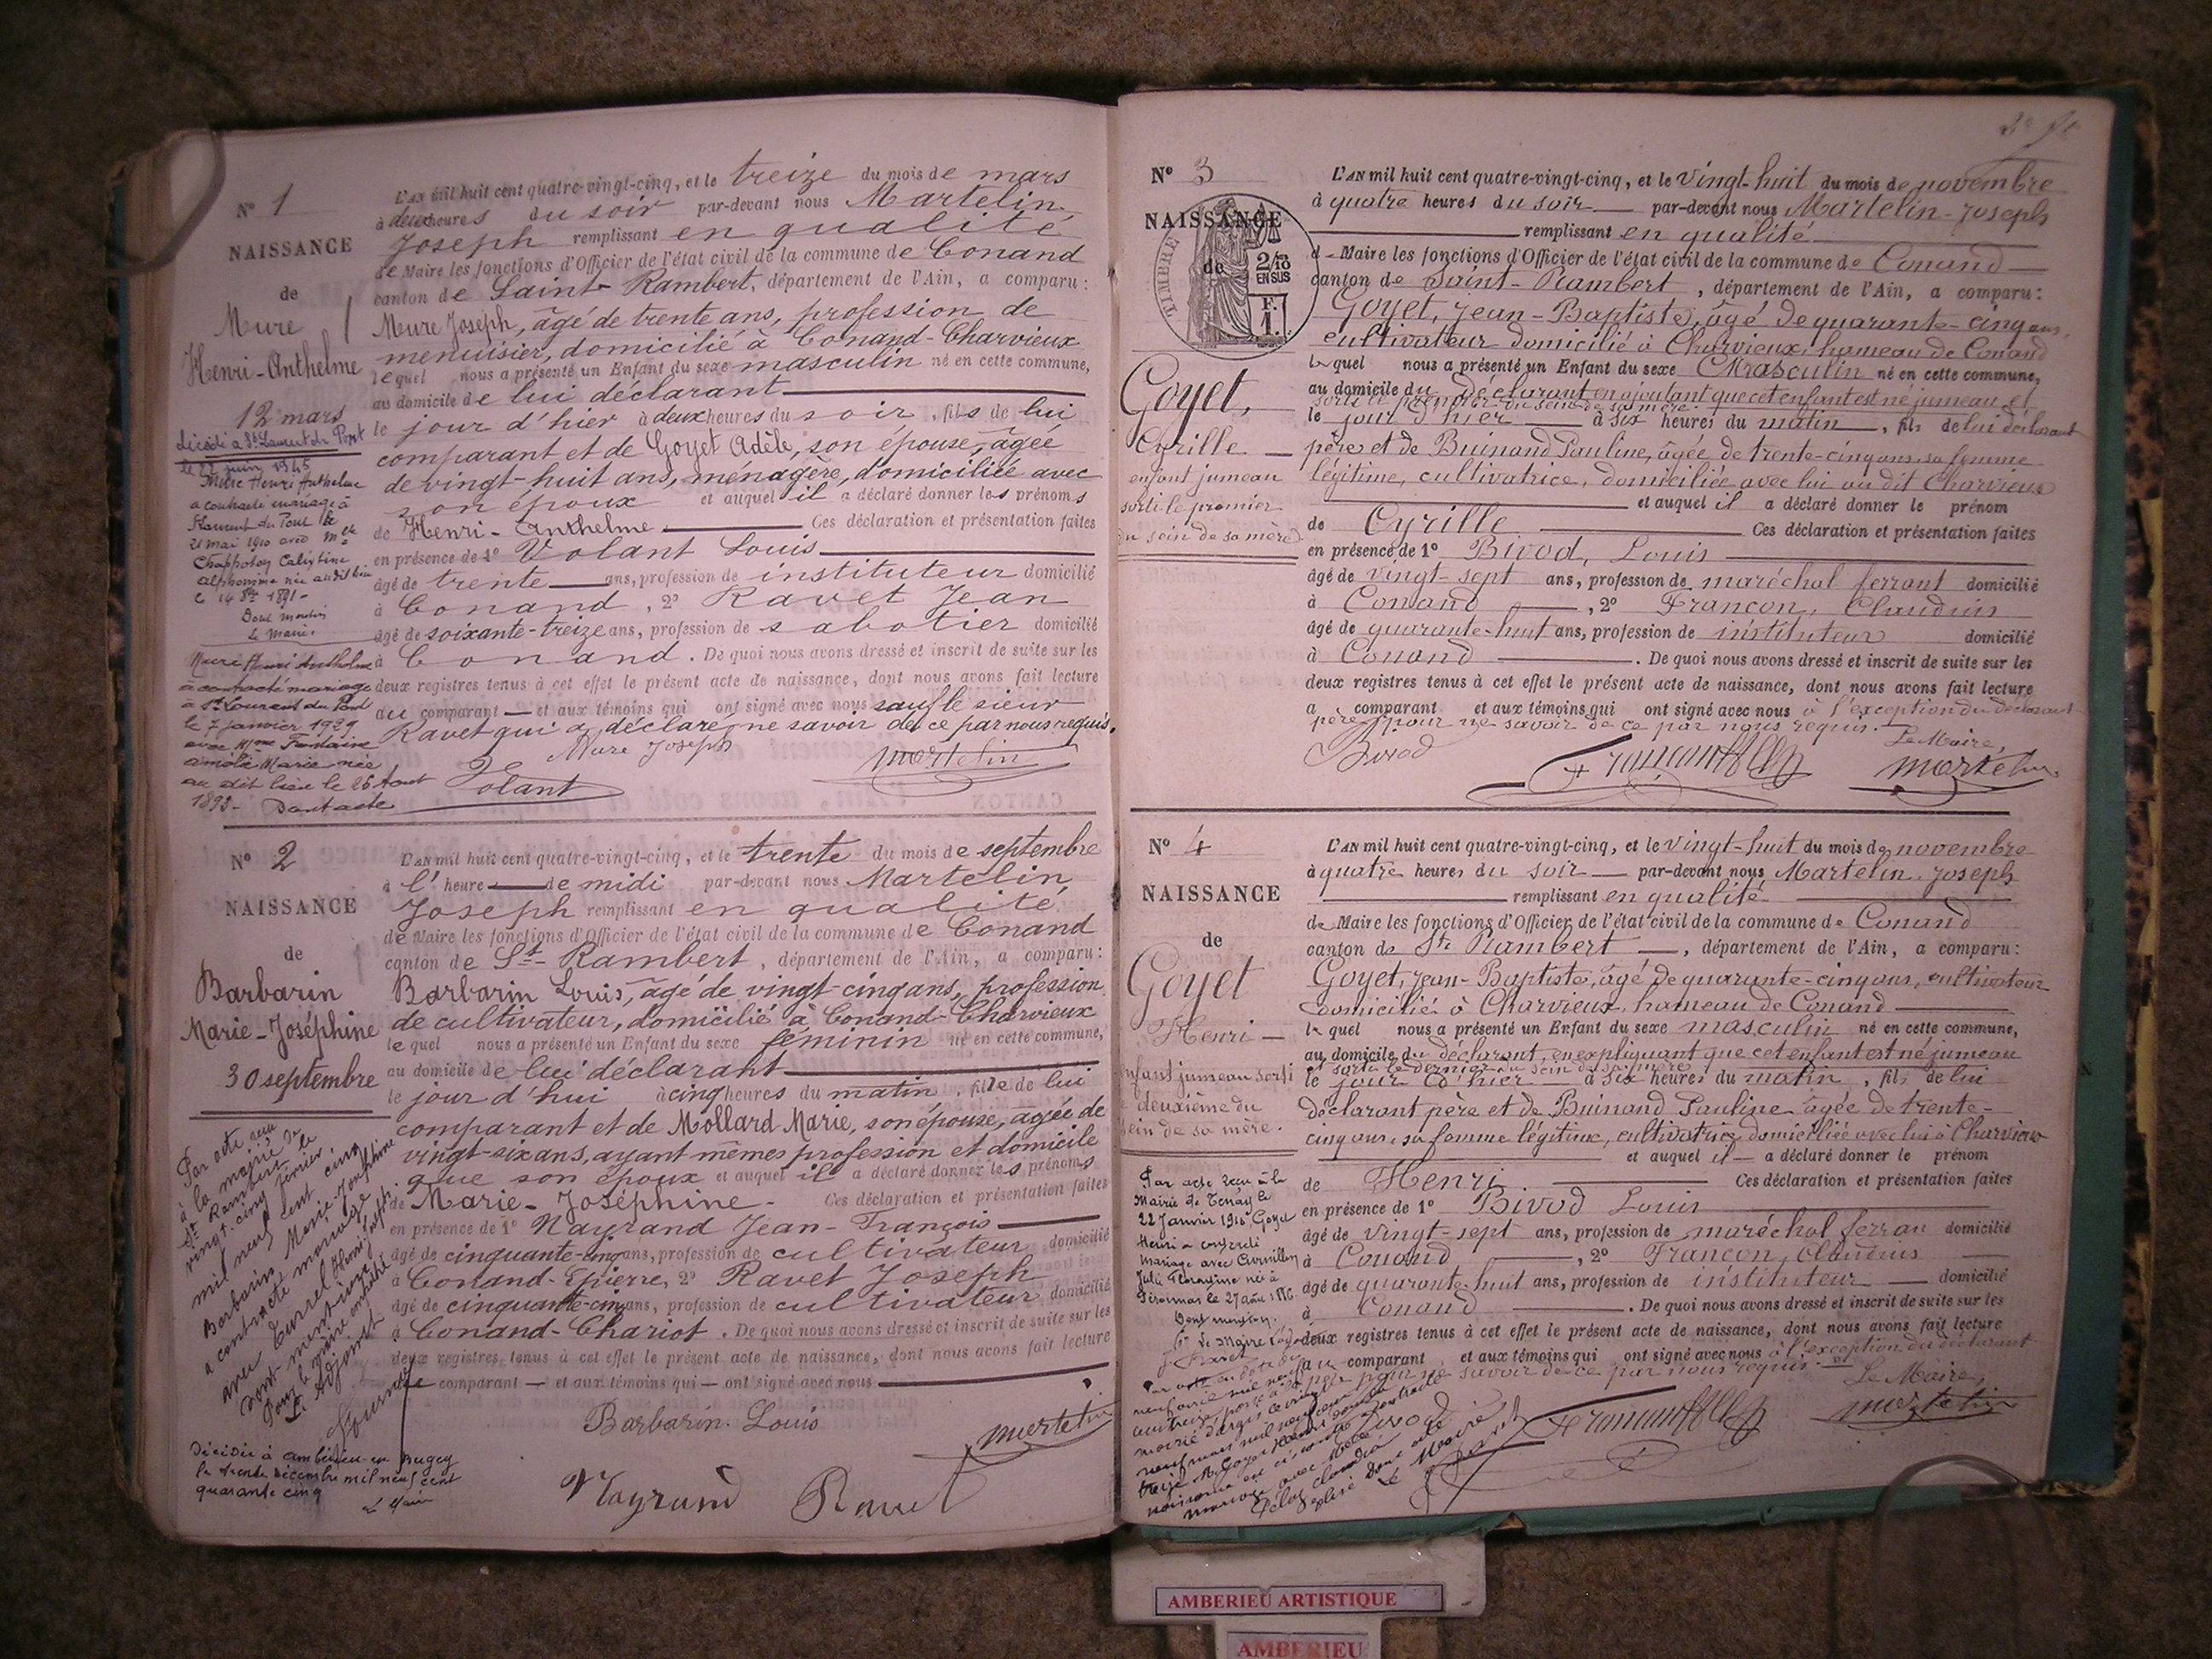 N° 1
NAISSANCE
de
Mure
Henri-Anthelme
12 mars
Décédé à St Laurent du Pont
le 22 juin 1945
Mure Henri Anthelme
a contracté mariage à
St Laurent du Pont le
21 mai 1910 avec Mlle
Calixtine
née au dit lieu
le 14 8bre 1891 -
Dont mention
Le Maire
Mure Henri Anthelme
a contracté mariage
à St Laurent du Pont
le 7 janvier 1929
avec Mme Fontaine
Marie née
au dit lieu le 26 Aout
1893 - Dont acte
L'AN mil huit cent quatre-vingt-cinq, et le treize du mois de mars
à deux heures du soir par-devant nous Martelin,
Joseph remplissant en qualité
de Maire les fonctions d'Officier de l'état civil de la commune de Conand
canton de Saint-Rambert, département de l'Ain, a comparu :
Mure Joseph, âgé de trente ans, profession de
menuisier, domicilié à Conand-Charvieux
lequel nous a présenté un Enfant du sexe masculin né en cette commune,
au domicile de lui déclarant
le jour d'hier à deux heures du soir, fils de lui
comparant et de Goyet Adèle, son épouse, âgée
de vingt-huit ans, ménagère, domiciliée avec
son époux et auquel il a déclaré donner les prénoms
de Henri-Anthelme Ces déclaration et présentation faites
en présence de 1° Volant Louis
âgé de trente ans, profession de instituteur domicilié
à Conand, 2° Ravet Jean
âgé de soixante-treize ans, profession de sabotier domicilié
à Conand. De quoi nous avons dressé et inscrit de suite sur les
deux registres tenus à cet effet le présent acte de naissance, dont nous avons fait lecture
au comparant et aux témoins qui ont signé avec nous sauf le sieur
Ravet qui a déclaré ne savoir de ce par nous requis.
Mure Joseph
Volant
Martelin
N° 2
NAISSANCE
de
Barbarin
Marie-Joséphine
30 septembre
Par acte reçu
à la mairie de
St Rambert le
vingt-cinq février
mil neuf cent cinq
Barbarin, Marie-Joséphine
a contracté mariage
avec
Dont mention
Pour le maire empêché
L'Adjoint
Décédée à Ambérieu-en-Bugey
le trente décembre mil neuf cent
quarante cinq
Le Maire
L'AN mil huit cent quatre-vingt-cinq, et le trente du mois de septembre
à l'heure de midi par-devant nous Martelin
Joseph remplissant en qualité
de Maire les fonctions d'Officier de l'état civil de la commune de Conand
canton de St-Rambert, département de l'Ain, a comparu :
Barbarin Louis, âgé de vingt-cinq ans, profession
de cultivateur, domicilié à Conand-Charvieux
lequel nous a présenté un Enfant du sexe féminin né en cette commune,
au domicile de lui déclarant
le jour d'hui à cinq heures du matin, fille de lui
comparant et de Mollard Marie, son épouse, âgée de
vingt-six ans, ayant mêmes profession et domicile
que son époux et auquel il a déclaré donner les prénoms
de Marie-Joséphine - Ces déclaration et présentation faites
en présence de 1° Nayrand Jean-François
âgé de cinquante-cinq ans, profession de cultivateur domicilié
à Conand-Epierre, 2° Ravet Joseph
âgé de cinquante-cinq ans, profession de cultivateur domicilié
à Conand-Chariot. De quoi nous avons dressé et inscrit de suite sur les
deux registres tenus à cet effet le présent acte de naissance, dont nous avons fait lecture
au comparant et aux témoins qui ont signé avec nous
Barbarin Louis
Martelin
Nayrand Ravet
N° 3
NAISSANCE
de
TIMBRE
2/10
EN SUS
F.
1.
Goyet,
Cyrille
enfant jumeau
sorti le premier
du sein de sa mère
L'AN mil huit cent quatre-vingt-cinq, et le vingt-huit du mois de novembre
à quatre heures du soir par-devant nous Martelin-Joseph
remplissant en qualité
de Maire les fonctions d'Officier de l'état civil de la commune de Conand
canton de Saint-Rambert, département de l'Ain, a comparu :
Goyet, Jean-Baptiste, âgé de quarante-cinq ans,
cultivateur domicilié à Charvieux, hameau de Conand
lequel nous a présenté un Enfant du sexe Masculin né en cette commune,
au domicile du déclarant en ajoutant que cet enfant est né jumeau et
sorti le premier du sein de sa mère.
le jour d'hier à six heures du matin, fils de lui déclarant
père et de Buinand Pauline, âgée de trente-cinq ans, sa femme
légitime, cultivatrice, domiciliée avec lui au dit Charvieux
et auquel il a déclaré donner le prénom
de Cyrille Ces déclaration et présentation faites
en présence de 1° Bivod, Louis
âgé de vingt-sept ans, profession de maréchal ferrant domicilié
à Conand, 2° Francon, Claudius
âgé de quarante-huit ans, profession de instituteur domicilié
à Conand. De quoi nous avons dressé et inscrit de suite sur les
deux registres tenus à cet effet le présent acte de naissance, dont nous avons fait lecture
a comparant et aux témoins qui ont signé avec nous à l'exception du déclarant
père, pour ne savoir de ce par nous requis.
Le Maire,
Bivod
Martelin
N° 4
NAISSANCE
de
Goyet
Henri
enfant jumeau sorti
deuxième du
sein de sa mère.
Par acte reçu à la
Mairie de Tenay le
22 Janvier Goyet
Henri a contracté
mariage avec
Julie née à
le 27 août 1886
Dont mention.
Le Maire
L'AN mil huit cent quatre-vingt-cinq, et le vingt-huit du mois de novembre
à quatre heures du soir par-devant nous Martelin Joseph
remplissant en qualité
de Maire les fonctions d'Officier de l'état civil de la commune de Conand
canton de St Rambert, département de l'Ain, a comparu :
Goyet, Jean-Baptiste, âgé de quarante-cinq ans, cultivateur
domicilié à Charvieux, hameau de Conand
lequel nous a présenté un Enfant du sexe masculin né en cette commune,
au domicile du déclarant, en expliquant que cet enfant est né jumeau
et sorti le dernier du sein de sa mère
le jour d'hier à six heures du matin, fils de lui
déclarant père et de Buinand Pauline âgée de trente-
cinq ans, sa femme légitime, cultivatrice domiciliée avec lui à Charvieux
et auquel il a déclaré donner le prénom
de Henri Ces déclaration et présentation faites
en présence de 1° Bivod Louis
âgé de vingt-sept ans, profession de maréchal ferran domicilié
à Conand, 2° Francon, Claudius
âgé de quarante-huit ans, profession de instituteur domicilié
à Conand. De quoi nous avons dressé et inscrit de suite sur les
deux registres tenus à cet effet le présent acte de naissance, dont nous avons fait lecture
au comparant et aux témoins qui ont signé avec nous à l'exception du déclarant
père pour ne savoir de ce par nous requis.
Le Maire,
Bivod
Martelin
AMBERIEU ARTISTIQUE
AMBERIEU